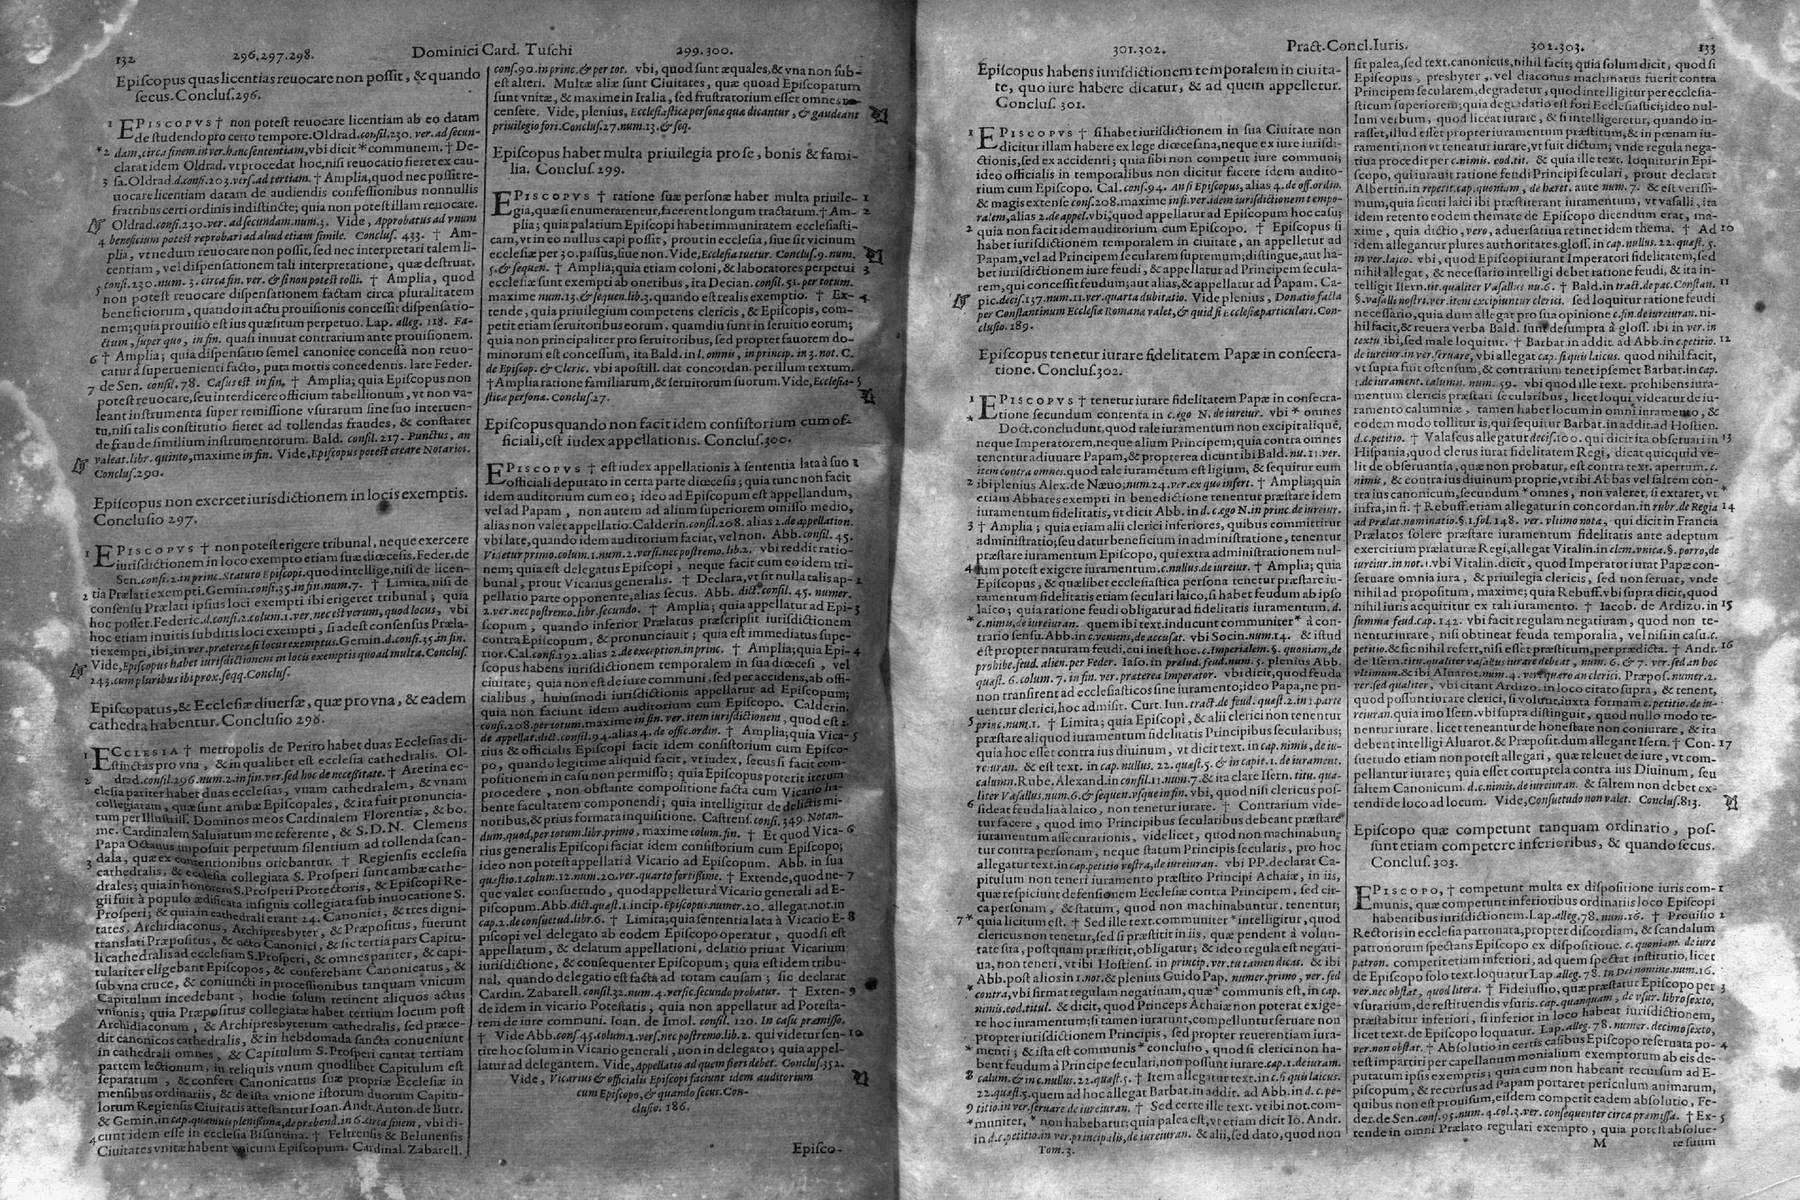 132 296.297.298. Dominici Card. Tuſchi 299.300.
Epiſcopus quas licentias reuocare non poſſit, & quando
ſecus. Concluſ.296.
1 EPISCOPVS † non poteſt reuocare licentiam ab eo datam
de ſtudendo pro certo tempore. Oldrad. conſil.230. ver. ad ſecun-
*2 dam, circa finem. in ver. hanc ſententiam, vbi dicit * communem. † De-
clarat idem Oldrad. vt procedat hoc, niſi reuocatio fieret ex cau-
3 ſa. Oldrad. d. conſil.203. verſ. ad tertiam. † Amplia, quod nec poſſit re-
uocare licentiam datam de audiendis confeſſionibus nonnullis
fratribus certi ordinis indiſtincte; quia non poteſt illam reuocare.
Oldrad. conſil.230. ver. ad ſecundam. num.3. Vide, Approbatus ad vnum
4 beneficium poteſt reprobari ad aliud etiam ſimile. Concluſ. 433. † Am-
plia, vt nedum reuocare non poſſit, ſed nec interpretari talem li-
centiam, vel diſpenſationem tali interpretatione, quæ deſtruat.
5 conſil.230. num. 3. circa fin. ver. & ſi non poteſt tolli. † Amplia, quod
non poteſt reuocare diſpenſationem factam circa pluralitatem
beneficiorum, quando in actu prouiſionis conceſſit diſpenſatio-
nem; quia prouiſio eſt ius quæſitum perpetuo. Lap. alleg. 118. Fa-
ctum, ſuper quo, in fin. quaſi innuat contrarium ante prouiſionem.
6 † Amplia; quia diſpenſatio ſemel canonice conceſſa non reuo-
catur à ſuperuenienti facto, puta mortis concedentis. late Feder.
7 de Sen. conſil. 78. Caſus eſt in fin. † Amplia; quia Epiſcopus non
poteſt reuocare, ſeu interdicere officium tabellionum, vt non va-
leant inſtrumenta ſuper remiſſione vſurarum ſine ſuo interuen-
tu, niſi talis conſtitutio fieret ad tollendas fraudes, & conſtaret
de fraude ſimilium inſtrumentorum. Bald. conſil. 217. Punctus, an
valeat. libr. quinto, maxime in fin. Vide, Epiſcopus poteſt creare Notarios.
Concluſ.290.
Epiſcopus non exercet iurisdictionem in locis exemptis.
Concluſio 297.
1 EPISCOPVS † non poteſt erigere tribunal, neque exercere
iuriſdictionem in loco exempto etiam ſuæ diœceſis. Feder. de
Sen. conſil.2. in princ. Statuto Epiſcopi. quod intellige, niſi de licen-
2 tia Prælati exempti. Gemin. conſil.35. in fin. num.7. † Limita, niſi de
conſenſu Prælati ipſius loci exempti ibi erigeret tribunal; quia
hoc poſſet. Federic. d. conſil.2. colum.1. ver. nec eſt verum, quod locus, vbi
hoc etiam inuitis ſubditis loci exempti, ſi adeſt conſenſus Præla-
ti exempti, ibi, in ver. præterea ſi locus exemptus. Gemin. d. conſil.35. in fin.
Vide, Epiſcopus habet iurisdictionem in locis exemptis quoad multa. Concluſ.
243. cum pluribus ibi prox. ſeqq. Concluſ.
Epiſcopatus, & Eccleſiæ diuerſæ, quæ pro vna, & eadem
cathedra habentur. Concluſio 298.
1 ECCLESIA † metropolis de Periro habet duas Eccleſias di-
ſtinctas pro vna, & in qualibet eſt eccleſia cathedralis. Ol-
2 drad. conſil.296. num.2. in fin. ver. ſed hoc de neceſſitate. † Aretina ec-
cleſia pariter habet duas eccleſias, vnam cathedralem, & vnam
collegiatam, quæ ſunt ambæ Epiſcopales, & ita fuit pronuncia-
tum per Illuſtriſſ. Dominos meos Cardinalem Florentiæ, & bo.
me. Cardinalem Saluiatum me referente, & S.D.N. Clemens
Papa Octauus impoſuit perpetuum ſilentium ad tollenda ſcan-
3 dala, quæ ex contentionibus oriebantur. † Regienſis eccleſia
cathedralis, & eccleſia collegiata S. Proſperi ſunt ambæ cathe-
drales; quia in honorem S. Proſperi Protectoris, & Epiſcopi Re-
gii fuit à populo ædificata inſignis collegiata ſub inuocatione S.
Proſperi; & quia in cathedrali erant 24. Canonici, & tres digni-
tates, Archidiaconus, Archipresbyter, & Præpoſitus, fuerunt
translati Præpoſitus, & octo Canonici, & ſic tertia pars Capitu-
li cathedralis ad eccleſiam S. Proſperi, & omnes pariter, & capi-
tulariter eligebant Epiſcopos, & conferebant Canonicatus, &
ſub vna cruce, & coniuncti in proceſſionibus tanquam vnicum
Capitulum incedebant, hodie ſolum retinent aliquos actus
vnionis; quia Præpoſitus collegiatæ habet tertium locum poſt
Archidiaconum, & Archipresbyterum cathedralis, ſed præce-
dit canonicos cathedralis, & in hebdomada ſancta conueniunt
in cathedrali omnes, & Capitulum S. Proſperi cantat tertiam
partem lectionum, in reliquis vnum quodlibet Capitulum eſt
ſeparatum, & confert Canonicatus ſuæ propriæ Eccleſiæ in
menſibus ordinariis, & de iſta vnione iſtorum duorum Capitu-
lorum Regienſis Ciuitatis atteſtantur Ioan. Andr. Anton. de Butr.
& Gemin. in cap. quamuis pleniſſima, de præbend. in 6. circa finem, vbi di-
4 cunt idem eſſe in eccleſia Biſuntina. † Feltrenſis & Belunenſis
Ciuitates vnitæ habent vnicum Epiſcopum. Cardinal. Zabarell.
conſ.90. in princ. & per tot. vbi, quod ſunt æquales, & vna non ſub-
eſt alteri. Multæ aliæ ſunt Ciuitates, quæ quoad Epiſcopatum
ſunt vnitæ, & maxime in Italia, ſed fruſtratorium eſſet omnes re-
cenſere. Vide, plenius, Eccleſiaſticæ perſonæ quæ dicantur, & gaudeant
priuilegio fori. Concluſ.27. num.13. & ſeq.
Epiſcopus habet multa priuilegia pro ſe, bonis & fami-
lia. Concluſ. 299.
EPISCOPVS † ratione ſuæ perſonæ habet multa priuile- 1
gia, quæ ſi enumerarentur, facerent longum tractatum. † Am- 2
plia; quia palatium Epiſcopi habet immunitatem eccleſiaſti-
cam, vt in eo nullus capi poſſit, prout in eccleſia, ſiue ſit vicinum
eccleſiæ per 30. paſſus, ſiue non. Vide, Eccleſia tuetur. Concluſ.9. num.
5. & ſequen. † Amplia; quia etiam coloni, & laboratores perpetui 3
eccleſiæ ſunt exempti ab oneribus, ita Decian. conſil. 51. per totum.
maxime num.13. & ſequen. lib.3. quando eſt realis exemptio. † Ex- 4
tende, quia priuilegium competens clericis, & Epiſcopis, com-
petit etiam ſeruitoribus eorum. quamdiu ſunt in ſeruitio eorum;
quia non principaliter pro ſeruitoribus, ſed propter fauorem do-
minorum eſt conceſſum, ita Bald. in l. omnis, in princip. in 3. not. C.
de Epiſcop. & Cleric. vbi apoſtill. dat concordan. per illum textum.
† Amplia ratione familiarum, & ſeruitorum ſuorum. Vide, Eccleſia- 5
ſtica perſona. Concluſ.27.
Epiſcopus quando non facit idem conſiſtorium cum of-
ficiali, eſt iudex appellationis. Concluſ.300.
EPISCOPVS † eſt iudex appellationis à ſententia lata à ſuo 1
officiali deputato in certa parte diœceſis; quia tunc non facit
idem auditorium cum eo; ideo ad Epiſcopum eſt appellandum,
vel ad Papam, non autem ad alium ſuperiorem omiſſo medio,
alias non valet appellatio. Calderin. conſil.208. alias 2. de appellation.
vbi late, quando idem auditorium faciat, vel non. Abb. conſil. 45.
Videtur primo. colum.1. num.2. verſi. nec poſtremo. lib.2. vbi reddit ratio-
nem; quia eſt delegatus Epiſcopi, neque facit cum eo idem tri-
bunal, prout Vicarius generalis. † Declara, vt ſit nulla talis ap- 2
pellatio parte opponente, alias ſecus. Abb. dict. conſil. 45. numer.
2. ver. nec poſtremo. libr. ſecundo. † Amplia; quia appellatur ad Epi- 3
ſcopum, quando inferior Prælatus præſcripſit iuriſdictionem
contra Epiſcopum, & pronunciauit; quia eſt immediatus ſupe-
rior. Cal. conſil.192. alias 2. de exception. in princ. † Amplia; quia Epi- 4
ſcopus habens iuriſdictionem temporalem in ſua diœceſi, vel
ciuitate; quia non eſt de iure communi, ſed per accidens, ab offi-
cialibus, huiuſmodi iuriſdictionis appellatur ad Epiſcopum;
quia non faciunt idem auditorium cum Epiſcopo. Calderin.
conſil.208. per totum. maxime in fin. ver. item iurisdictionem, quod eſt 2.
de appellat. dict. conſil.94. alias 4. de offic. ordin. † Amplia; quia Vica- 5
rius & officialis Epiſcopi facit idem conſiſtorium cum Epiſco-
po, quando legitime aliquid facit, vt iudex, ſecus ſi facit com-
poſitionem in caſu non permiſſo; quia Epiſcopus poterit iterum
procedere, non obſtante compoſitione facta cum Vicario ha-
bente facultatem componendi; quia intelligitur de delictis mi-
noribus, & prius formata inquiſitione. Caſtrenſ. conſil. 349. Notan-
dum, quod, per totum. libr. primo, maxime colum. fin. † Et quod Vica- 6
rius generalis Epiſcopi faciat idem conſiſtorium cum Epiſcopo;
ideo non poteſt appellari à Vicario ad Epiſcopum. Abb. in ſua
quæſtio.1. colum.12. num.20. ver. quarto fortiſſime. † Extende, quod ne- 7
que valet conſuetudo, quod appelletur à Vicario generali ad E-
piſcopum. Abb. dict. quæſt.1. incip. Epiſcopus. numer.20. allegat. not. in
cap.2. de conſuetud. lib.6. † Limita; quia ſententia lata à Vicario E- 8
piſcopi vel delegato ab eodem Epiſcopo operatur, quod ſi eſt
appellatum, & delatum appellationi, delatio priuat Vicarium
iuriſdictione, & conſequenter Epiſcopum; quia eſt idem tribu-
nal, quando delegatio eſt facta ad totam cauſam; ſic declarat
Cardin. Zabarell. conſil.32. num.4. verſic. ſecundo probatur. † Exten- 9
de idem in vicario Poteſtatis, quia non appellatur ad Poteſta-
tem de iure communi. Ioan. de Imol. conſil. 120. In caſu præmiſſo.
† Vide Abb. conſ.45. colum.1. verſ. nec poſtremo. lib.2. qui videtur ſen- 10
tire hoc ſolum in Vicario generali, non in delegato; quia appel-
latur ad delegantem. Vide, Appellatio ad quem fieri debet. Concluſ.352.
Vide, Vicarius & officialis Epiſcopi faciunt idem auditorium
cum Epiſcopo, & quando ſecus. Con-
cluſio. 186.
Epiſco-
301.302. Pract. Concl. Iuris. 302.303. 133
Epiſcopus habens iurisdictionem temporalem in ciuita-
te, quo iure habere dicatur, & ad quem appelletur.
Concluſ. 301.
1 EPISCOPVS † ſi habet iuriſdictionem in ſua Ciuitate non
dicitur illam habere ex lege diœceſana, neque ex iure iuriſdi-
ctionis, ſed ex accidenti; quia ſibi non competit iure communi;
ideo officialis in temporalibus non dicitur facere idem audito-
rium cum Epiſcopo. Cal. conſ.94. An ſi Epiſcopus, alias 4. de off. ordin.
& magis extenſe conſ.208. maxime in fi. ver. idem iurisdictionem tempo-
ralem, alias 2. de appel. vbi, quod appellatur ad Epiſcopum hoc caſu;
2 quia non facit idem auditorium cum Epiſcopo. † Epiſcopus ſi
habet iuriſdictionem temporalem in ciuitate, an appelletur ad
Papam, vel ad Principem ſecularem ſupremum; diſtingue, aut ha-
bet iuriſdictionem iure feudi, & appellatur ad Principem ſecula-
rem, qui conceſſit feudum; aut alias, & appellatur ad Papam. Ca-
pic. deciſ.137. num.11. ver. quarta dubitatio. Vide plenius, Donatio facta
per Conſtantinum Eccleſiæ Romanæ valet, & quid ſi Eccleſiæ particulari. Con-
cluſio. 289.
Epiſcopus tenetur iurare fidelitatem Papæ in conſecra-
tione. Concluſ.302.
1 EPISCOPVS † tenetur iurare fidelitatem Papæ in conſecra-
* tione ſecundum contenta in c. ego N. de iureiur. vbi * omnes
Doct. concludunt, quod tale iuramentum non excipit aliquē,
neque Imperatorem, neque alium Principem; quia contra omnes
tenentur adiuuare Papam, & propterea dicunt ibi Bald. nu.11. ver.
item contra omnes. quod tale iuramētum eſt ligium, & ſequitur eum
2 ibi plenius Alex. de Næuo; num.24. ver. ex quo infert. † Amplia; quia
etiam Abbates exempti in benedictione tenentur præſtare idem
iuramentum fidelitatis, vt dicit Abb. in d. c. ego N. in princ. de iureiur.
3 † Amplia; quia etiam alii clerici inferiores, quibus committitur
adminiſtratio; ſeu datur beneficium in adminiſtratione, tenentur
præſtare iuramentum Epiſcopo, qui extra adminiſtrationem nul-
4 lum poteſt exigere iuramentum. c. nullus. de iureiur. † Amplia; quia
Epiſcopus, & quælibet eccleſiaſtica perſona tenetur præſtare iu-
ramentum fidelitatis etiam ſeculari laico, ſi habet feudum ab ipſo
laico; quia ratione feudi obligatur ad fidelitatis iuramentum. d.
* c. nimis, de iureiuran. quem ibi text. inducunt communiter * à con-
trario ſenſu. Abb. in c. veniens, de accuſat. vbi Socin. num.14. & iſtud
eſt propter naturam feudi, cui ineſt hoc. c. Imperialem. §. quoniam, de
prohibe. feud. alien. per Feder. Iaſo. in prælud. feud. num.5. plenius Abb.
quæſt. 6. colum. 7. in fin. ver. præterea Imperator. vbi dicit, quod feuda
non tranſirent ad eccleſiaſticos ſine iuramento; ideo Papa, ne pri-
uentur clerici, hoc admiſit. Curt. Iun. tract. de feud. quæſt.2. in 1. parte
5 princ. num.1. † Limita; quia Epiſcopi, & alii clerici non tenentur
præſtare aliquod iuramentum fidelitatis Principibus ſecularibus;
quia hoc eſſet contra ius diuinum, vt dicit text. in cap. nimis, de iu-
reiuran. & eſt text. in cap. nullus. 22. quæſt.5. & in capit. 1. de iuramen.
calumn. Rube. Alexand. in conſil.11. num.7. & ita clare Iſern. titu. qua-
liter Vaſallus. num.6. & ſequen. vſque in fin. vbi, quod niſi clericus poſ-
6 ſideat feudalia à laico, non tenetur iurare. † Contrarium vide-
tur facere, quod imo Principibus ſecularibus debeant præſtare
iuramentum aſſecurationis, videlicet, quod non machinabun-
tur contra perſonam, neque ſtatum Principis ſecularis, pro hoc
allegatur text. in cap. petitio veſtra, de iureiuran. vbi PP. declarat Ca-
pitulum non teneri iuramento præſtito Principi Achaiæ, in iis,
quæ reſpiciunt defenſionem Eccleſiæ contra Principem, ſed cir-
ca perſonam, & ſtatum, quod non machinabuntur. tenentur;
7 * quia licitum eſt. † Sed ille text. communiter * intelligitur, quod
clericus non tenetur, ſed ſi præſtitit in iis, quæ pendent à volun-
tate ſua, poſtquam præſtitit, obligatur; & ideo regula eſt negati-
ua, non teneri, vt ibi Hoſtienſ. in princip. ver. tu tamen dicas. & ibi
Abb. poſt alios in 1. not. & plenius Guido Pap. numer. primo, ver. ſed
* contra, vbi firmat regulam negatiuam, quæ * communis eſt, in cap.
nimis. eod. titul. & dicit, quod Princeps Achaiæ non poterat exige-
re hoc iuramentum; ſi tamen iurarunt, compelluntur ſeruare non
propter iuriſdictionem Principis, ſed propter reuerentiam iura-
* menti; & iſta eſt communis * concluſio, quod ſi clerici non ha-
bent feudum à Principe ſeculari, non poſſunt iurare. cap.1. de iuram.
8 calum. & in c. nullus. 22. quæſt.5. † Item allegatur text. in c. ſi quis laicus.
22. quæſt.5. quem ad hoc allegat Barbat. in addit. ad Abb. in d. c. pe-
9 titio. in ver. ſeruare. de iureiuran. † Sed certe ille text. vt ibi not. com-
* muniter, * non habebatur; quia palea eſt, vt etiam dicit Io. Andr.
in d. c. petitio. in ver. principalis, de iureiuran. & alii, ſed dato, quod non
ſit palea, ſed text. canonicus, nihil facit; quia ſolum dicit, quod ſi
Epiſcopus, presbyter, vel diaconus machinatus fuerit contra
Principem ſecularem, degradetur, quod intelligitur per eccleſia-
ſticum ſuperiorem; quia degradatio eſt fori Eccleſiaſtici; ideo nul-
lum verbum, quod liceat iurare, & ſi intelligeretur, quando iu-
raſſet, illud eſſet propter iuramentum præſtitum, & in pœnam iu-
ramenti, non vt teneatur iurare, vt fuit dictum; vnde regula nega-
tiua procedit per c. nimis. eod. tit. & quia ille text. loquitur in Epi-
ſcopo, qui iurauit ratione feudi Principi ſeculari, prout declarat
Albertin. in repetit. cap. quoniam, de hæret. ante num. 7. & eſt veriſſi-
mum, quia ſicuti laici ibi præſtiterant iuramentum, vt vaſalli, ita
idem retento eodem themate de Epiſcopo dicendum erat, ma-
xime, quia dictio, vero, aduerſatiua retinet idem thema. † Ad 10
idem allegantur plures authoritates. gloſſ. in cap. nullus. 22. quæſt. 5.
in ver. laico. vbi, quod Epiſcopi iurant Imperatori fidelitatem, ſed
nihil allegat, & neceſſario intelligi debet ratione feudi, & ita in-
telligit Iſern. tit. qualiter Vaſallus. nu.6. † Bald. in tract. de pac. Conſtan. 11
§. vaſalli noſtri. ver. item excipiuntur clerici. ſed loquitur ratione feudi
neceſſario, quia dum allegat pro ſua opinione c. fin. de iureiuran. ni-
hil facit, & reuera verba Bald. ſunt deſumpta à gloſſ. ibi in ver. in
textu ibi, ſed male loquitur. † Barbat. in addit. ad Abb. in c. petitio. 12
de iureiur. in ver. ſeruare, vbi allegat cap. ſi quis laicus. quod nihil facit,
vt ſupra fuit oſtenſum, & contrarium tenet ipſemet Barbat. in cap.
1. de iurament. calumn. num. 59. vbi quod ille text. prohibens iura-
mentum clericis præſtari ſecularibus, licet loqui videatur de iu-
ramento calumniæ, tamen habet locum in omni iuramento, &
eodem modo tollitur is, qui ſequitur Barbat. in addit. ad Hoſtien.
d. c. petitio. † Valaſcus allegatur deciſ.100. qui dicit ita obſeruari in 13
Hiſpania, quod clerus iurat fidelitatem Regi, dicat quicquid ve-
lit de obſeruantia, quæ non probatur, eſt contra text. apertum. c.
nimis, & contra ius diuinum proprie, vt ibi Abbas vel ſaltem con-
tra ius canonicum, ſecundum * omnes, non valeret, ſi extaret, vt *
infra, in fi. † Rebuff. etiam allegatur in concordan. in rubr. de Regia 14
ad Prælat. nominatio. §. 1. fol. 148. ver. vltimo nota, qui dicit in Francia
Prælatos ſolere præſtare iuramentum fidelitatis ante adeptum
exercitium prælaturæ Regi, allegat Vitalin. in clem. vnica. §. porro, de
iureiur. in not.1. vbi Vitalin. dicit, quod Imperator iurat Papæ con-
ſeruare omnia iura, & priuilegia clericis, ſed non ſeruat, vnde
nihil ad propoſitum, maxime; quia Rebuff. vbi ſupra dicit, quod
nihil iuris acquiritur ex tali iuramento. † Iacob. de Ardizo. in 15
ſumma feud. cap. 142. vbi facit regulam negatiuam, quod non te-
nentur iurare, niſi obtineat feuda temporalia, vel niſi in caſu. c.
petitio. & ſic nihil refert, niſi eſſet præſtitum, per prædicta. † Andr. 16
de Iſern. titu. qualiter vaſallus iurare debeat, num. 6. & 7. verſ. ad hoc
vltimum. & ibi Aluarot. num.4. ver. quæro an clerici. Præpoſ. numer.2.
ver. ſed qualiter, vbi citant Ardizo. in loco citato ſupra, & tenent,
quod poſſunt iurare clerici, ſi volunt, iuxta formam c. petitio. de iu-
reiuran. quia imo Iſern. vbi ſupra diſtinguit, quod nullo modo te-
nentur iurare. licet teneantur de honeſtate non coniurare, & ita
debent intelligi Aluarot. & Præpoſit. dum allegant Iſern. † Con- 17
ſuetudo etiam non poteſt allegari, quæ releuet de iure, vt com-
pellantur iurare; quia eſſet corruptela contra ius Diuinum, ſeu
ſaltem Canonicum. d. c. nimis. de iureiuran. & ſaltem non debet ex-
tendi de loco ad locum. Vide, Conſuetudo non valet. Concluſ.813.
Epiſcopo quæ competunt tanquam ordinario, poſ-
ſunt etiam competere inferioribus, & quando ſecus.
Concluſ. 303.
EPISCOPO, † competunt multa ex diſpoſitione iuris com- 1
munis, quæ competunt inferioribus ordinariis loco Epiſcopi
habentibus iuriſdictionem. Lap. alleg.78. num.16. † Prouiſio 2
Rectoris in eccleſia patronata, propter diſcordiam, & ſcandalum
patronorum ſpectans Epiſcopo ex diſpoſitione. c. quoniam. de iure
patron. competit etiam inferiori, ad quem ſpectat inſtitutio, licet
de Epiſcopo ſolo text. loquatur Lap. alleg. 78. In Dei nomine. num.16.
ver. nec obſtat, quod litera. † Fideiuſſio, quæ præſtatur Epiſcopo per 3
vſurarium, de reſtituendis vſuris. cap. quamquam, de vſur. libro ſexto,
præſtabitur inferiori, ſi inferior in loco habeat iura Epiſcopi,
licet text. de Epiſcopo loquatur. Lap. alleg. 78. numer. decimoſexto,
ver. non obſtat. † Abſolutio in certis caſibus Epiſcopo reſeruata po- 4
teſt impartiri per capellanum monialium exemptorum ab eis de-
putatum ipſis exemptis; quia cum non habeant recurſum ad E-
piſcopum, & recurſus ad Papam portaret periculum animarum,
quibus non eſt prouiſum, eiſdem competit eadem abſolutio, Fe-
der. de Sen. conſ.95. num.4. col.3. ver. conſequenter circa præmiſſa. † Ex- 5
tende in omni Prælato regulari exempto, quia poteſt abſolue-
Tom. 3. M re ſuum